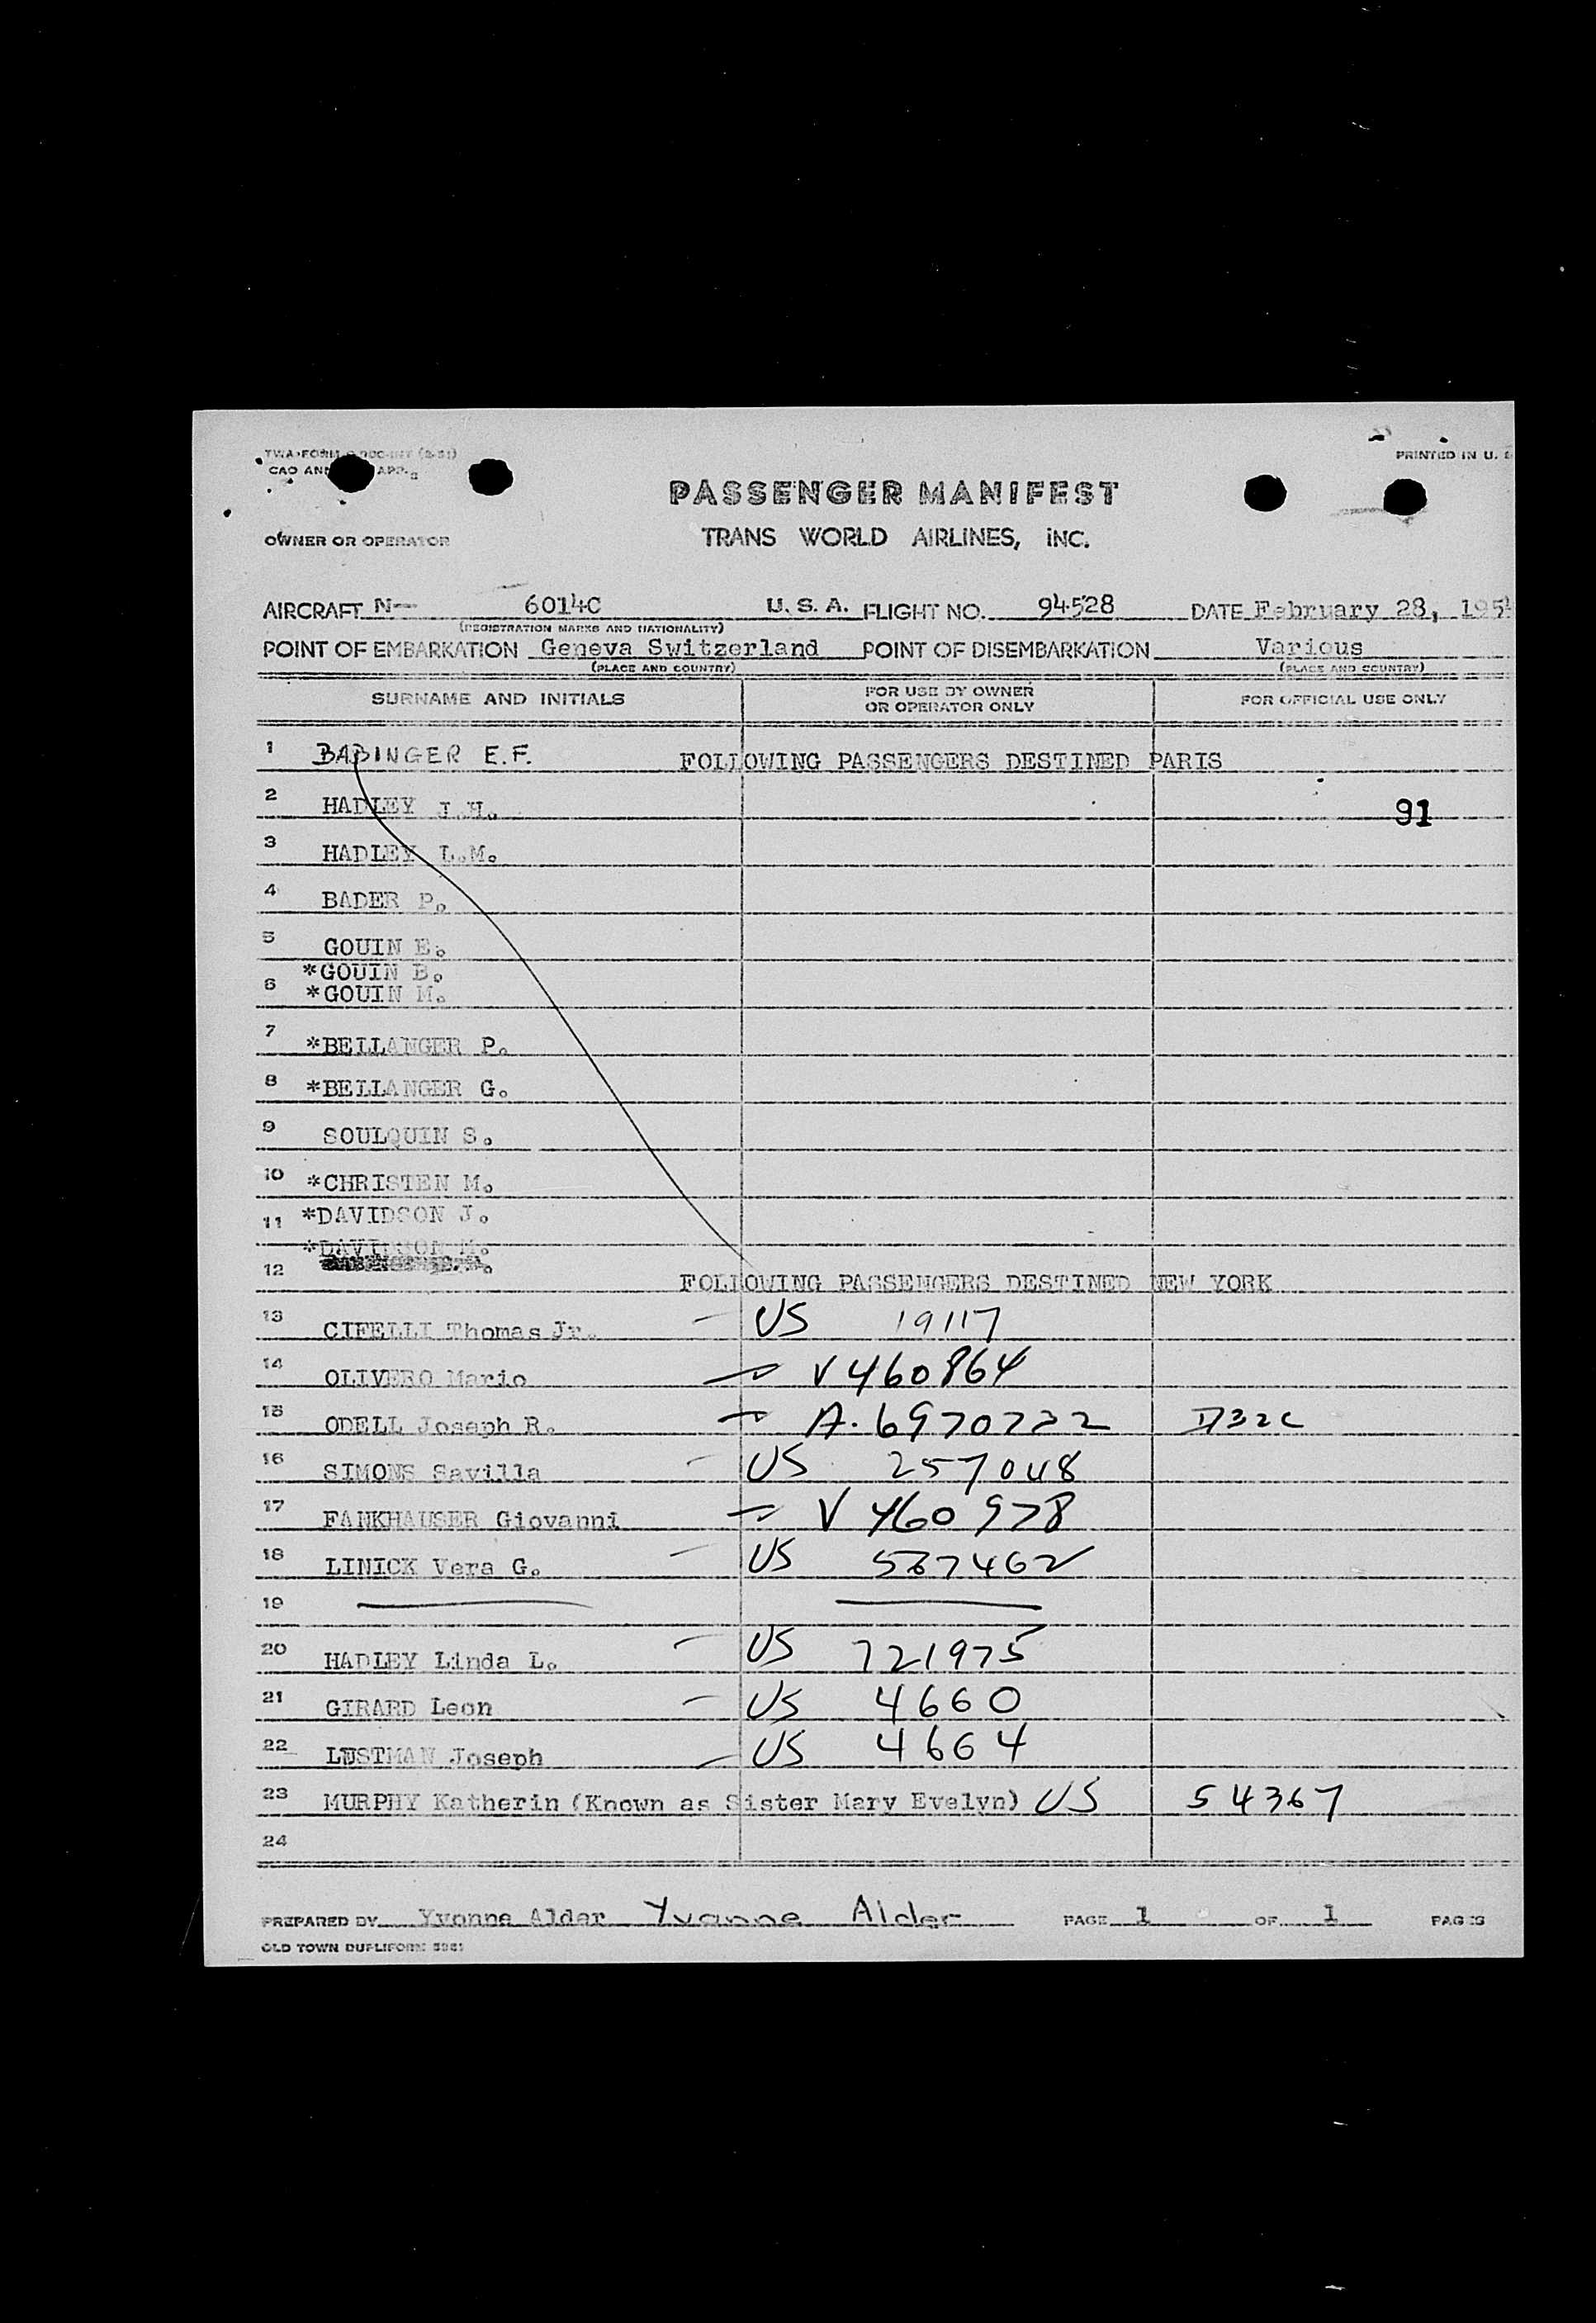 TWA-FORM
CAO ANN APP.
PRINTED IN U. S
PASSENGER MANIFEST
OWNER OR OPERATOR TRANS WORLD AIRLINES, INC.
AIRCRAFT N— 6014C U. S. A. FLIGHT NO. 94528 DATE February 28, 1954
(REGISTRATION MARKS AND NATIONALITY)
POINT OF EMBARKATION Geneva Switzerland POINT OF DISEMBARKATION Various
(PLACE AND COUNTRY) (PLACE AND COUNTRY)
SURNAME AND INITIALS FOR USE BY OWNER OR OPERATOR ONLY FOR OFFICIAL USE ONLY
1 BABINGER E.F. FOLLOWING PASSENGERS DESTINED PARIS
2 HADLEY J.H. 91
3 HADLEY L.M.
4 BADER P.
5 GOUIN E.
*GOUIN B.
6 *GOUIN M.
7 *BELLANGER P.
8 *BELLANGER G.
9 SOULQUIN S.
10 *CHRISTEN M.
11 *DAVIDSON J.
*DAVIDSON M.
12 FOLLOWING PASSENGERS DESTINED NEW YORK
13 CIFELLI Thomas Jr. US 19117
14 OLIVERO Mario V 460864
15 ODELL Joseph R. A. 6970722 D32C
16 SIMONS Savilla US 257048
17 FANKHAUSER Giovanni V 460978
18 LINICK Vera G. US 587462
19
20 HADLEY Linda L. US 721975
21 GIRARD Leon US 4660
22 LUSTMAN Joseph US 4664
23 MURPHY Katherin (Known as Sister Mary Evelyn) US 54367
24
PREPARED BY Yvonne Alder Yvonne Alder PAGE 1 OF 1 PAGES
OLD TOWN DUPLIFORM